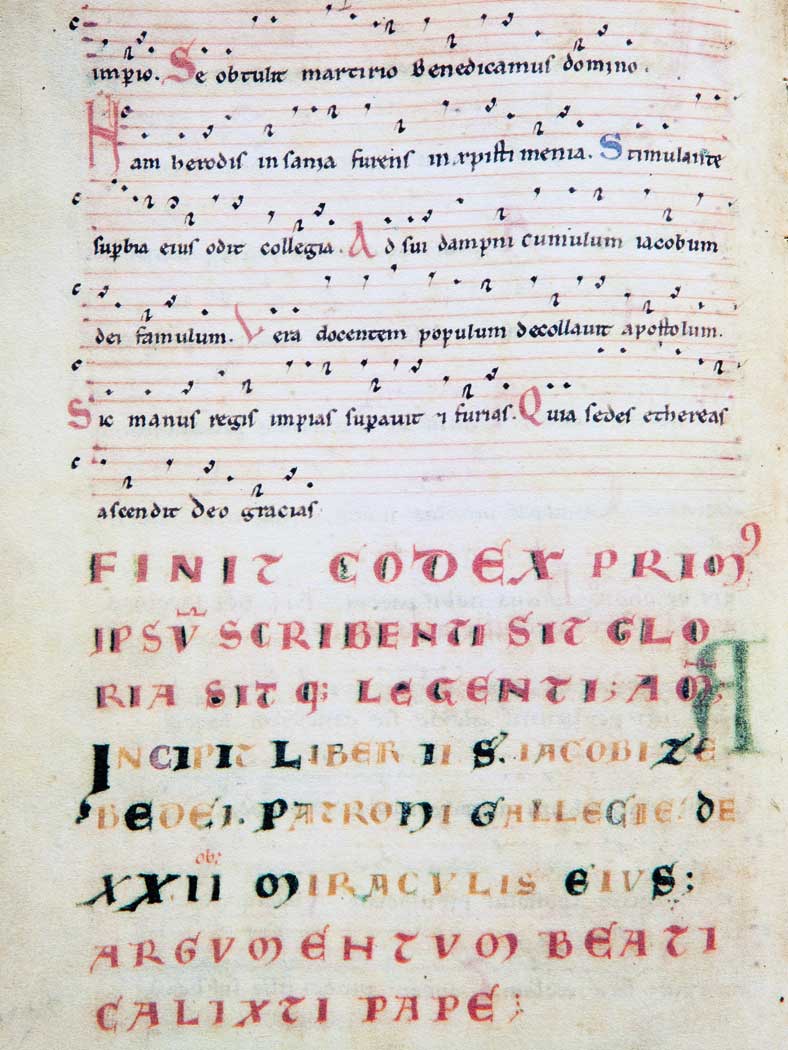 imperio. Se obtulit martirio Benedicamus domino.
Nam herodis insania furens in xpisti menia. Stimulante
superbia eius odit collegia. Ad sui dampni cumulum iacobum
dei famulum. Vera docentem populum decollauit apostolum.
Sic manus regis impias superauit ⁊ furias. Quia sedes ethereas
ascendit deo gracias
FINIT CODEX PRIMꝰ
IPSVM SCRIBENTI SIT GLO
RIA SIT Qꝫ LEGENTI; AM̄;
INCIPIT LIBER II S. IACOBI ZE
BEDEI. PATRONI GALLECIE. DE
XXII MIRACULIS EIVS;
ARGVMENTVM BEATI
CALIXTI PAPE;